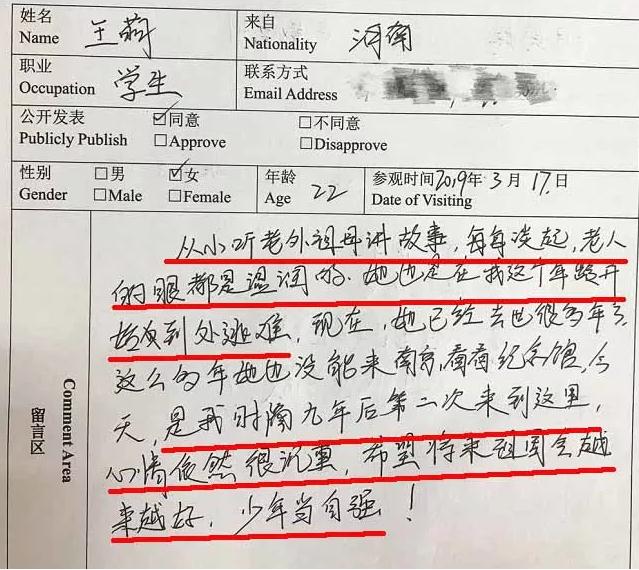 姓名 来自
Name 王莉 Nationality 河南
职业 联系方式
Occupation 学生 Email Address
公开发表 ☑同意 □不同意
Publicly Publish □Approve □Disapprove
性别 □男 ☑女 年龄 参观时间2019年3月17日
Gender □Male □Female Age 22 Date of Visiting
从小听老外祖母讲故事,每每谈起,老人
的眼都是湿润的。她也是在我这个年龄开
始到处逃难,现在,她已经去世很多年了
这么多年她也没能来南京,看看纪念馆,今
天,是我时隔九年后第二次来到这里,
心情依然很沉重,希望将来祖国会越
来越好,少年当自强!
留言区
Comment Area